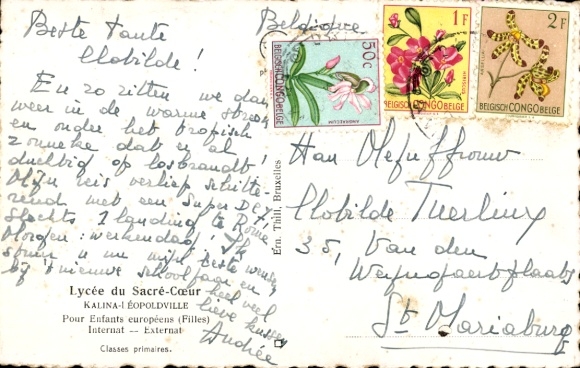 Beste tante
Clotilde!
En zo zitten we dan
weer in de warme streek
en onder het tropisch
zonneke dat er al
duchtig op losbrandt!
Mijn reis verliep schitte-
rend met een Super DC 7,
slechts 1 landing te Rome
Morgen: werkendag! Ik
u mijn beste wensen
bij 't nieuwe schooljaar en
heel veel
lieve kussen
Andrée
Lycée du Sacré-Cœur
KALINA-LÉOPOLDVILLE
Pour Enfants européens (Filles)
Internat -- Externat
Classes primaires.
Ern. Thill, Bruxelles
Belgique
50c
BELGISCH CONGO BELGE
ANGRAECUM
1F
BELGISCH CONGO BELGE
2F
BELGISCH CONGO BELGE
Aan Mejuffrouw
Clotilde Tuerlinx
35, Van den
Weyngaertplaats
St Mariaburg